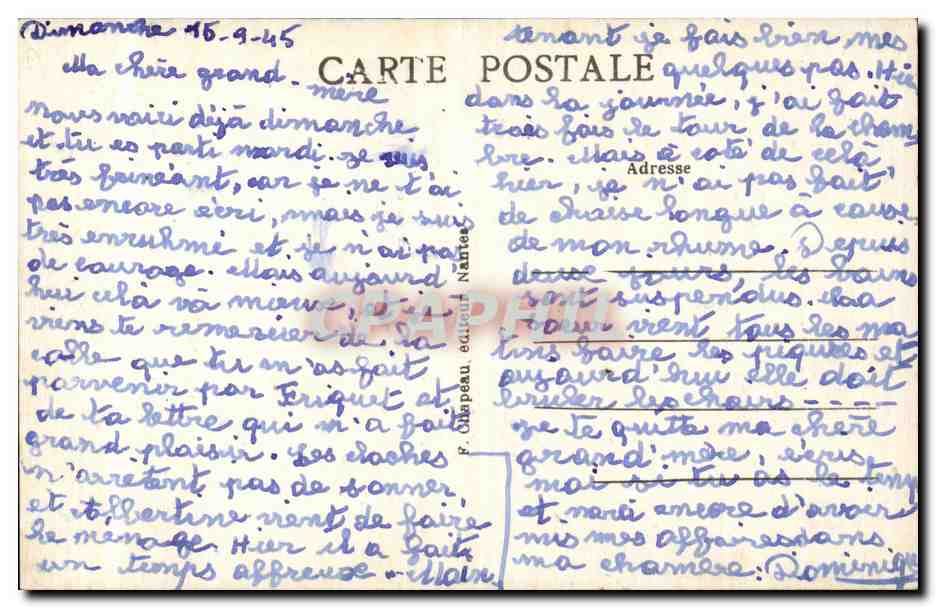 Dimanche 16-9-45
CARTE POSTALE
Ma chère grand-
mère
nous voici déjà dimanche
et tu es parti mardi. Je suis
très feinéant, car je ne t'ai
pas encore écri, mais je suis
très enruhmé et je n'ai pas
de courage. Mais aujourd'
hui celà vâ mieux, et je
viens te remercier de la
calle que tu m'as fait
parvenir par Friquet et
de ta lettre qui m'a fait
grand plaisir. Les cloches
n'arretent pas de sonner,
et Albertine vient de faire
le menage. Hier il a fait
un temps affreux. Main
tenant je fais bien mes
quelques pas. Hier
dans la journée, j'ai fait
trois fois le tour de la cham
bre. Mais à coté de celà
Adresse
hier, je n'ai pas fait
de chaise longue à cause
de mon rhume. Depuis
deux jours, les bains
sont suspendus. La
sœur vient tous les ma
tins faire les piqures et
aujourd'hui elle doit
bruler les chairs ----
Je te quitte ma chère
grand'mère, écris
moi si tu as le temps
et merci encore d'avoir
mis mes affaires dans
ma chambre. Dominique
F. Chapeau, éditeur, Nantes
CPAPHIL